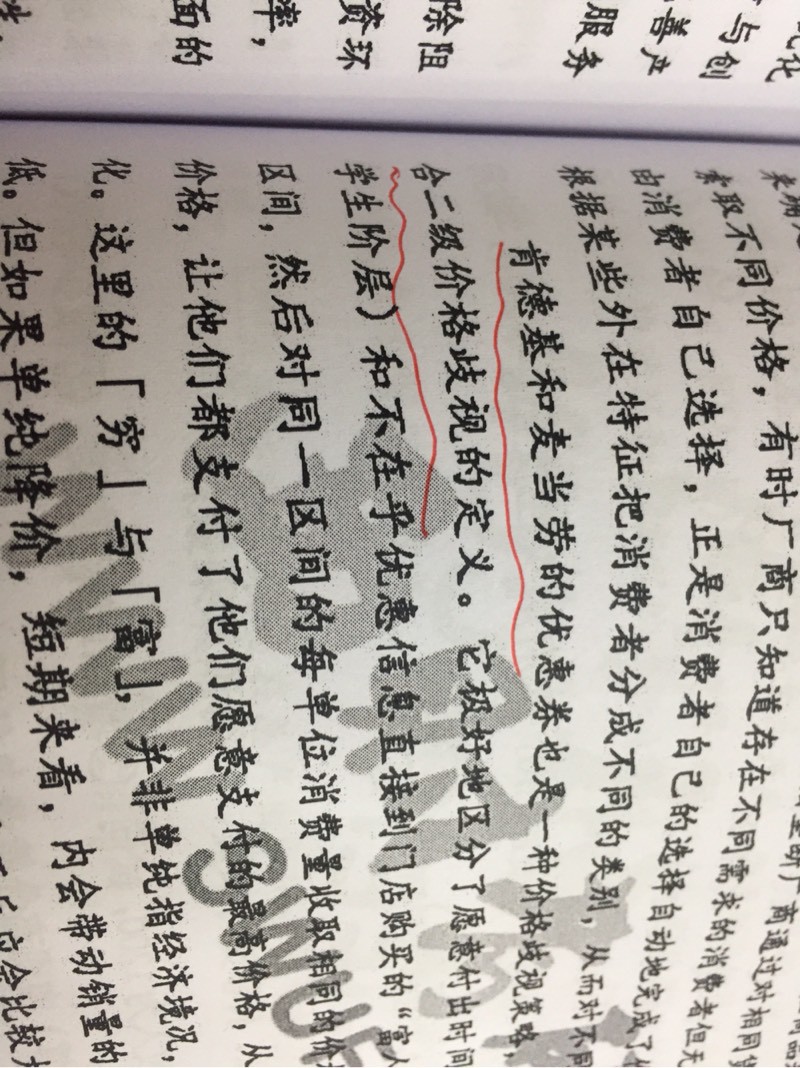 化
与创
善产
服务
除阻
资环
率，
面的
厂商通过对相同
索取不同价格，有时厂商只知道存在不同需求的消费者但无
由消费者自己选择，正是消费者自己的选择自动地完成了
根据某些外在特征把消费者分成不同的类别，从而对不同
肯德基和麦当劳的优惠券也是一种价格歧视策略，
合二级价格歧视的定义。它极好地区分了愿意付出时间
学生阶层）和不在乎优惠信息直接到门店购买的“富人
区间，然后对同一区间的每单位消费量收取相同的价
价格，让他们都支付了他们愿意支付的最高价格，从
化。这里的「穷」与「富」，并非单纯指经济境况，
低。但如果单纯降价，短期来看，内会带动销量的
应会比较大